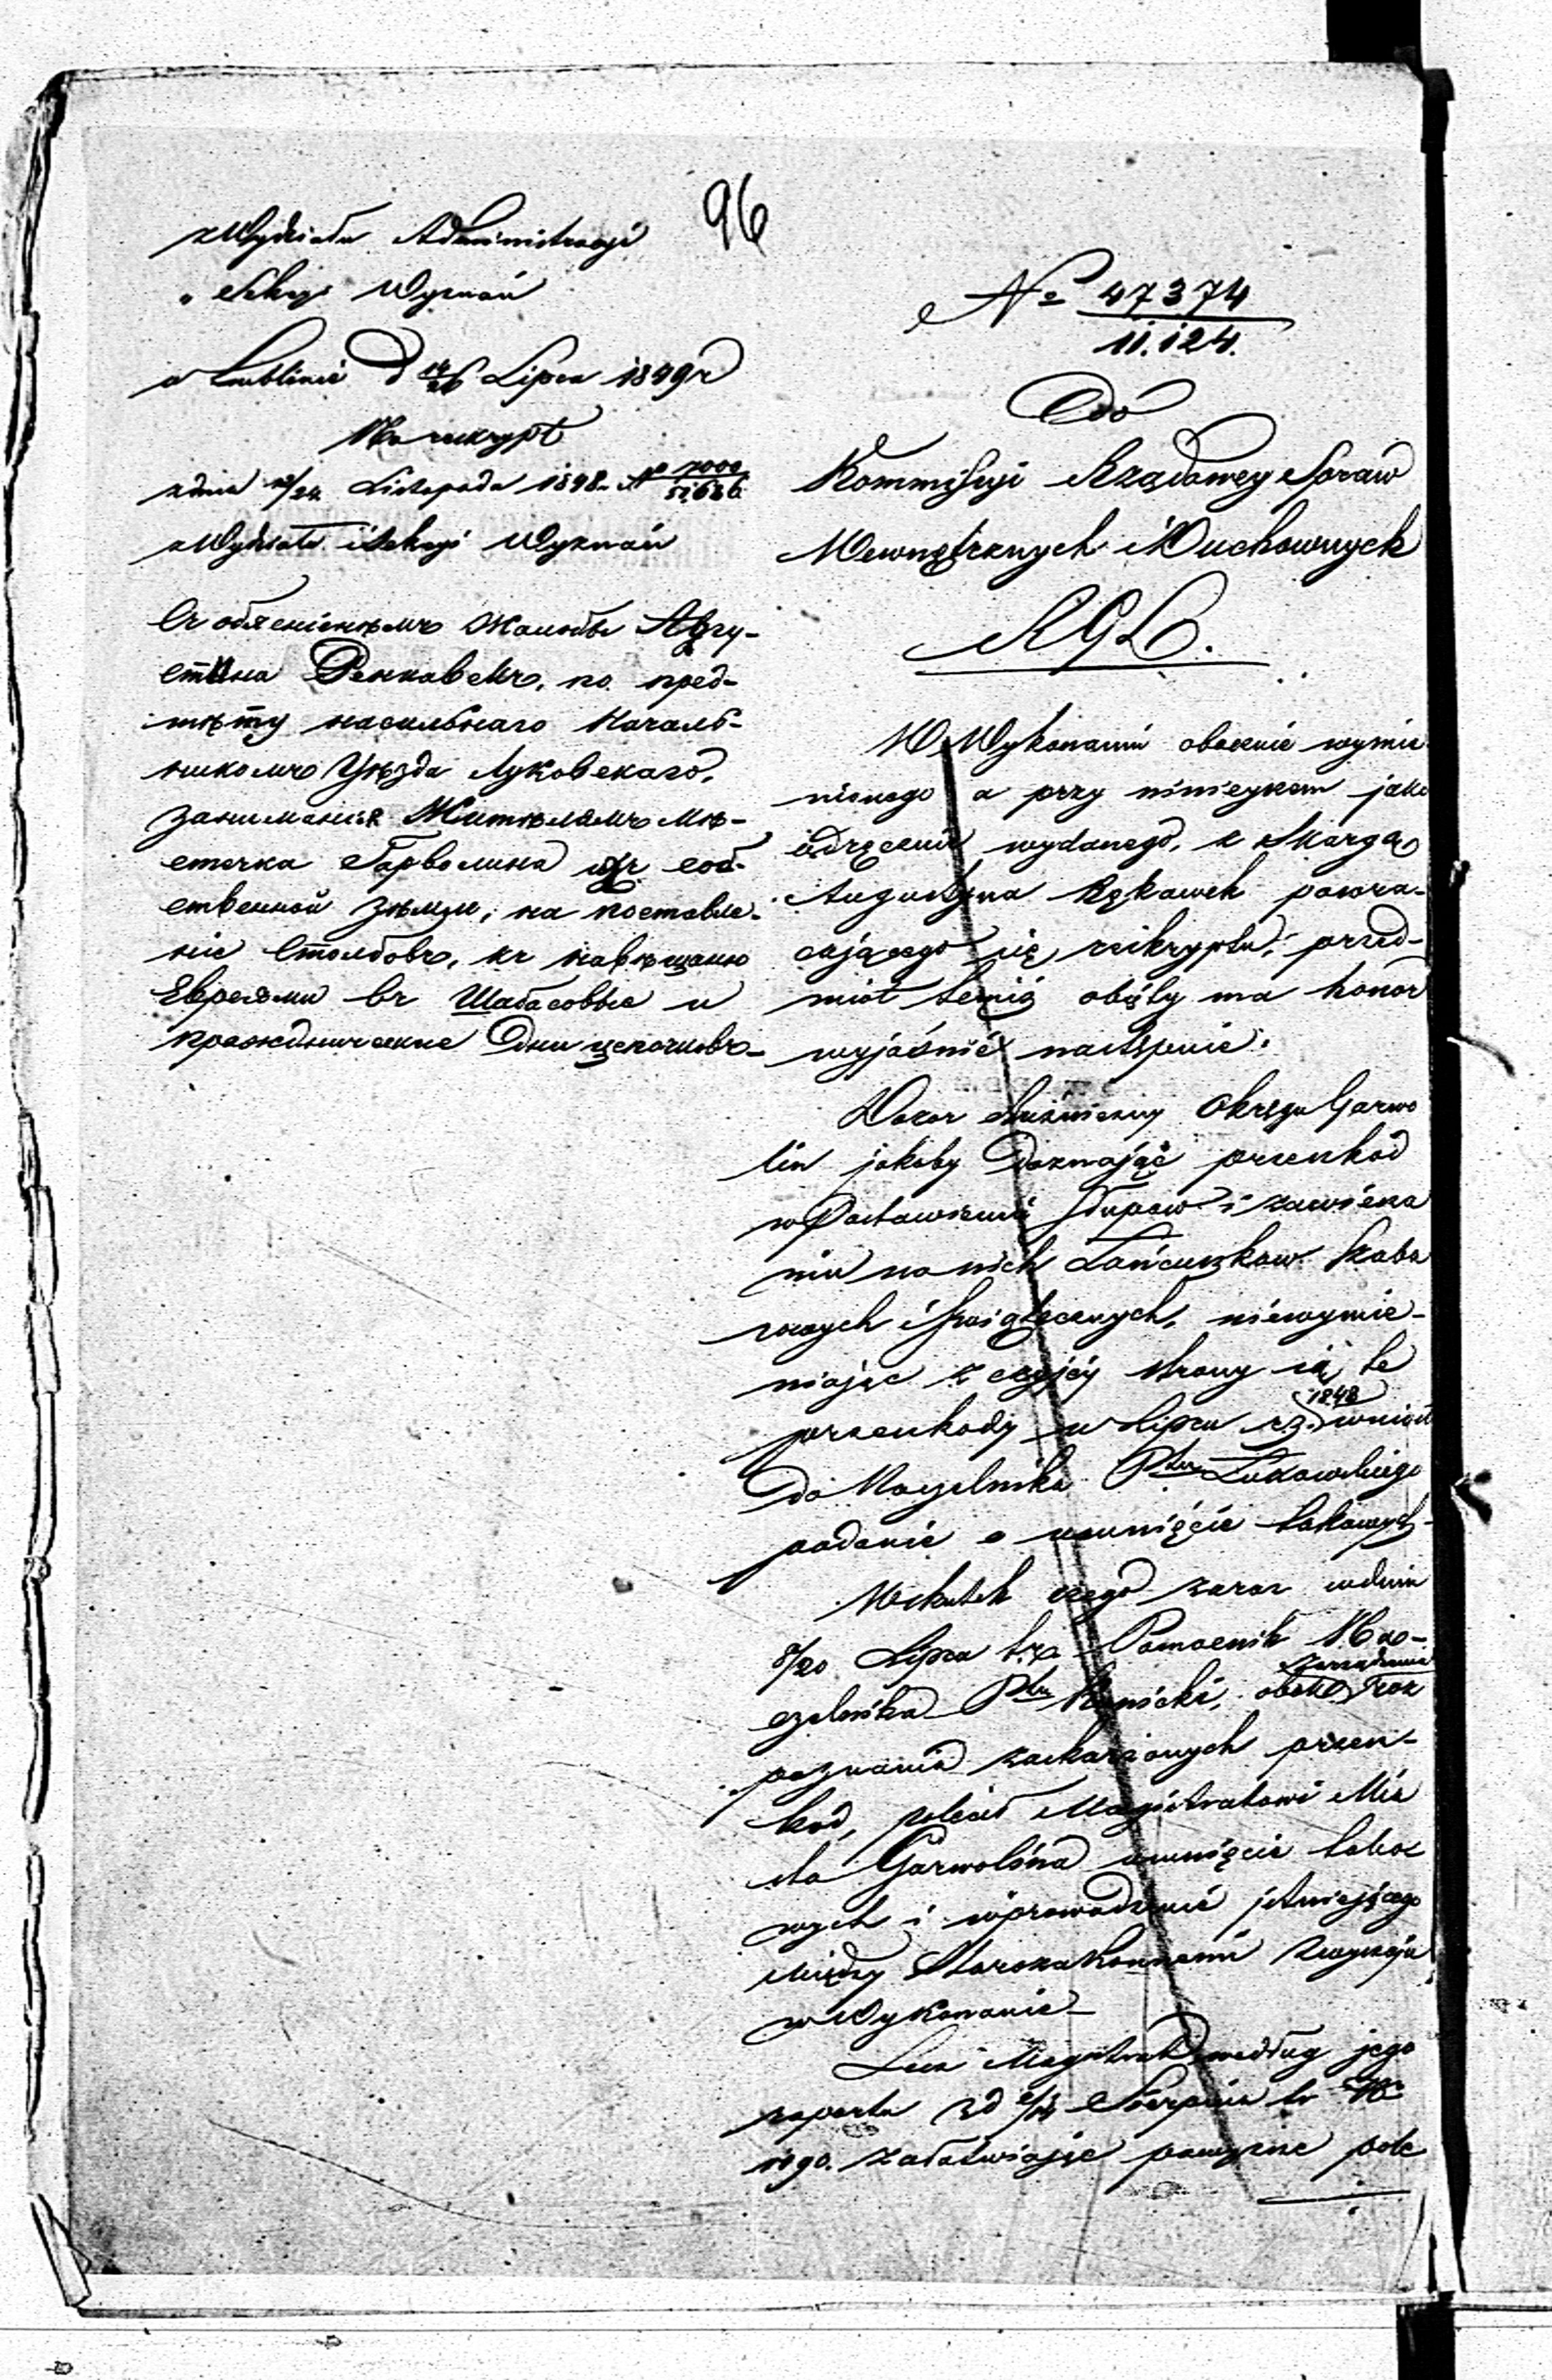 96
z Wydziału Administracyi
" Sekcyi Wyznań
w Lublinie d 14/26 Lipca 1849 r
Na reskrypt
z dnia 12/24 Listopada 1848 r. N° 7000/51.636
z Wydziału i Sekcyi Wyznań
Съ объясненіемъ Жалобы Авгу-
стина Ренкавекъ, по пред-
мѣту насильнаго Началь-
никомъ Уѣзда Луковскаго,
заниманія Жителямъ мѣ-
стечка Гарволина ихъ соб-
ственной земли, на поставле-
ніе Столбовъ, къ навѣшанію
Евреями въ Шабасовые и
праздническіе Дни цепочковъ_
N° 47374
11.124.
Do
Kommissyi Rządowey Spraw
Wewnętrznych i Duchownych
R G L.
W Wykonaniu obocznie wymie
nionego a przy ninieyszem jako
wydanego, z Skargą
Augustyna Rękawek powra-
cającego się reskryptu, przed-
miot temiż objęty ma honor
wyjaśnić następnie:
Dozor Bużniczny Okręgu Garwo
lin jakoby doznając przeszkód
w Postawieniu słupow i zawiesza
niu na nich Łańcuszkow Szaba
sowych i Swiątecznych, niewymie-
niając z czyjéj strony są te
przeszkody w Lipcu r.z. (1848) wniósł
do Naczelnika Ptu Łukowskiego
podanie o usunięcie takowych_
Wskutek czego zaraz w dniu
8/20 Lipca t.r. Pomocnik Na-
czelnika Ptu obok zarządzenia roz
poznania zaskarżonych przesz-
kód, polecił Magistratowi Mia
sta Garwolina usunięcie tako
wych i wprowadzenie istniejącego
między Starozakonnemi zwyczaju
w Wykonanie_
Lecz Magistrat według jego
raportu z d 2/14 Sierpnia t.r. N°
1190. załatwiając powyższe pole